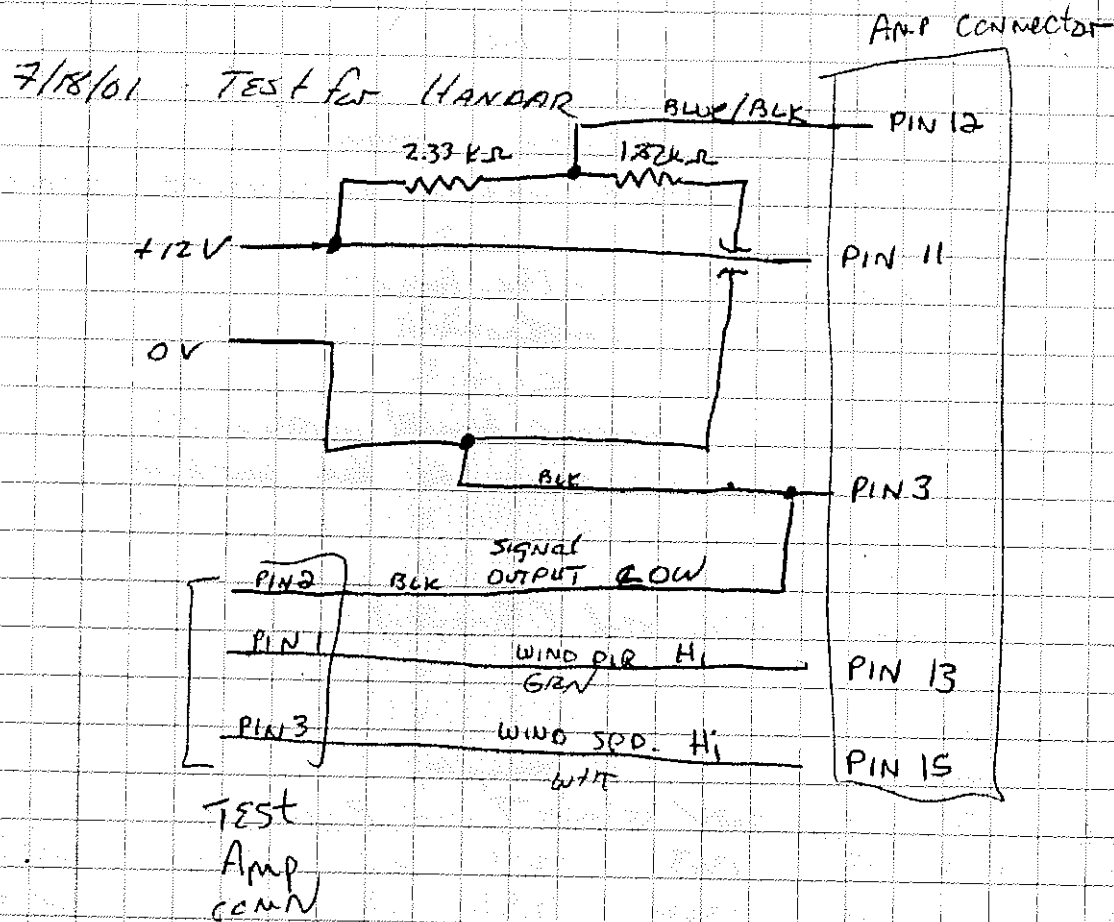 AMP CONNECTOR
7/18/01 TEST for HANDAR
BLUE/BLK PIN 12
2.33 KΩ 1.82K Ω
+12V PIN 11
0V
BLK PIN 3
SIGNAL
PIN2 BLK OUTPUT LOW
PIN 1 WIND DIR Hi PIN 13
GRN
PIN 3 WIND SPD. Hi PIN 15
WHT
TEST
Amp
CONN